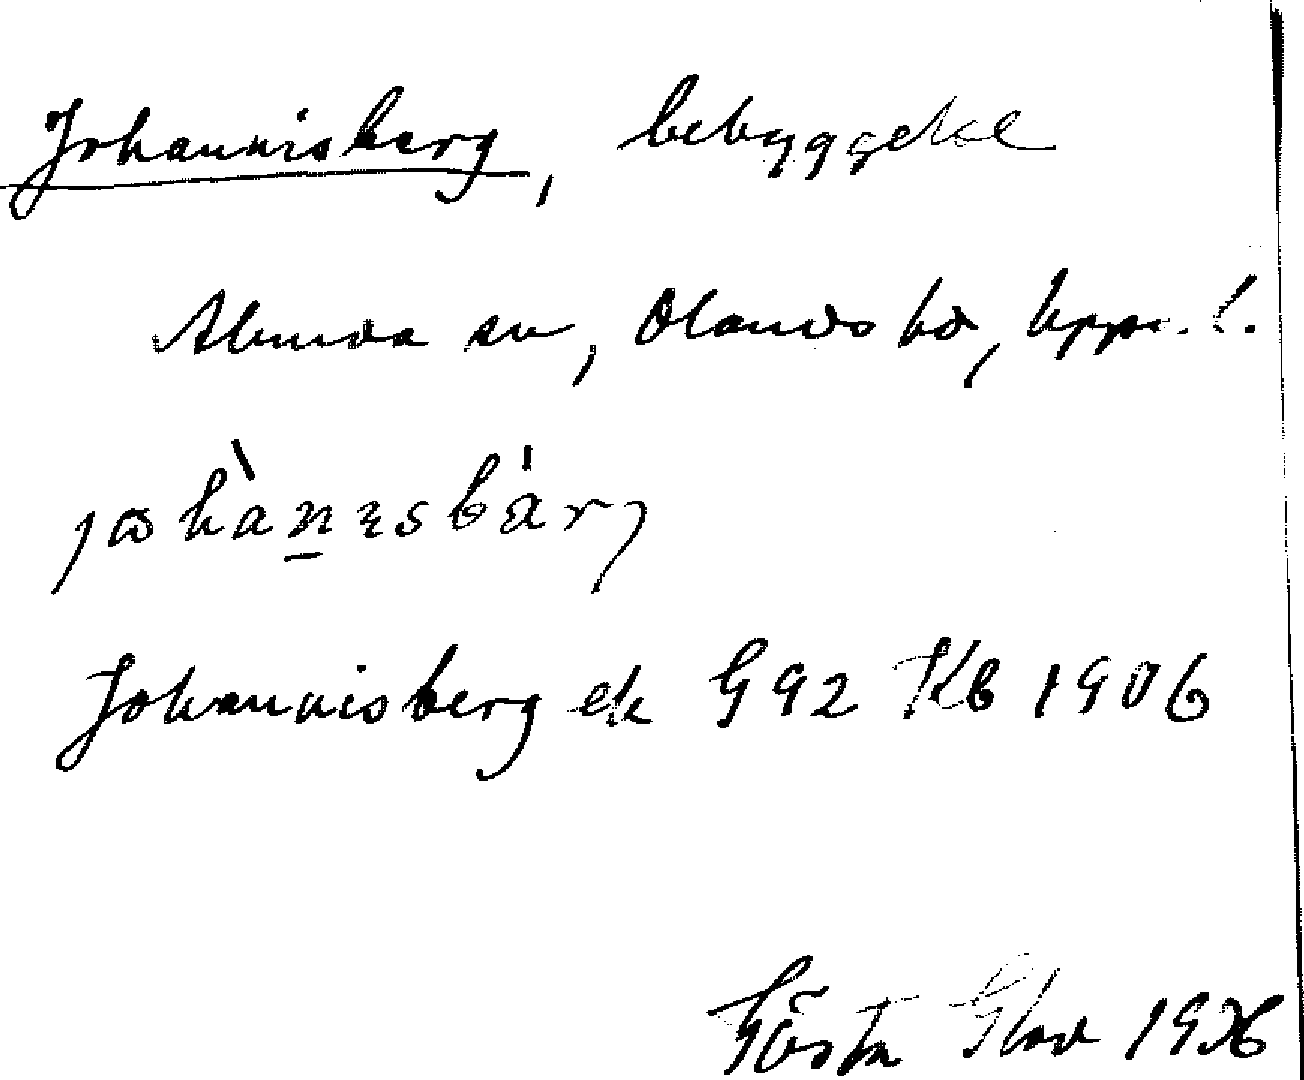 Johannisberg, bebyggelse
Alunda sn, Olands hd, Upps. l.
Johannisberg ek G92 Kb 1906
Gösta 1936